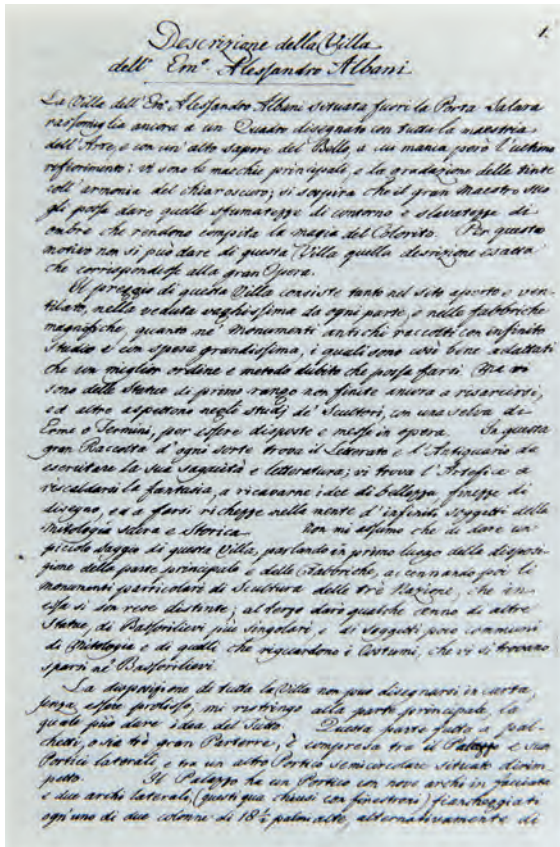 1.
Descrizione della Villa
dell' Emo. Alessandro Albani
La Villa dell' Em. Alessandro Albani situata fuori la Porta Salara
rassomiglia ancora a un Quadro disegnato con tutta la maestria
dell' Arte, e con un' alto sapere del Bello, a cui mania però l'ultimo
rifiorimento: vi sono le macchie principali, e la gradazione delle tinte
coll' armonia del chiaroscuro; si sospira che il gran Maestro suo
gli possa dare quelle sfumatezze di contorno e slavatezze di
ombre che rendono compita la magia del Colorito. Per questo
motivo non si può dare di questa Villa quella descrizione esatta
che corrispondesse alla gran Opera.
Il preggio di questa Villa consiste tanto nel sito aperto e ven-
tilato, nella veduta vaghissima da ogni parte, e nelle fabbriche
magnifiche, quanto ne' Monumenti antichi raccolti con infinito
studio e con spesa grandissima, i quali sono così bene adattati
che un miglior ordine e metodo dubito che possa farsi. Qua vi
sono delle Statue di primo rango non finite ancora a risarcirsi,
ed altre aspettono negli studj de' Scultori, con una selva di
Erme o Termini, per essere disposte e messe in opera. In questa
gran Raccolta d'ogni sorte trova il Letterato e l'Antiquario da
esercitare la sua sagacità e letteratura; vi trova l'Artefice a
riscaldarsi la fantasia, a ricavarne idee di bellezza finezze di
disegno, ed a farsi richezze nella mente d'infiniti soggetti della
Mitologia sacra e Storica. Non mi assumo che di dare un
piccolo saggio di questa Villa, parlando in primo luogo della disposi-
zione della parte principale e delle Fabbriche, accennando poi li
monumenti particolari di Scultura delle tre Nazione, che in
essa si son rese distinte; al tergo darò qualche cenno di altre
Statue, di Bassorilievi più singolari, e di Soggetti poco communi
di Mitologia e di quelli che riguardono i Costumi, che vi si trovano
sparsi ne' Bassorilievi.
La disposizione di tutta la Villa non può disegnarsi in carta,
senza essere prolisso, mi restringo alla parte principale, la
quale può dare idea del Tutto. Questa parte fatta a pal-
chetti, o sia tré gran Parterre, è compresa tra il Palazzo e suoi
Portici laterali, e tra un altro Portico semicircolare situato dirim-
petto. Il Palazzo ha un Portico con nove archi in facciata
e due archi laterali, (questi qua chiusi con finestroni) fiancheggiati
ogn'uno di due colonne di 18½ palmi alte, alternativamente di